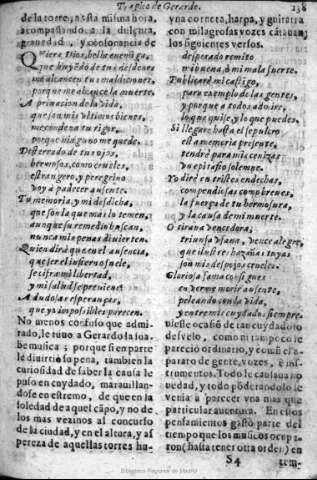 Tragico de Gerardo. 138
de la torre, hasta mi sna hora,
acompañando a la dulçura,
grauedad, y consonancia de
Quiera Dios, bella enemiga,
que huyendo de tus desdenes
no alcancen tus maldiciones,
porque me alcance la muerte.
A privacion de la vida,
que son mis vltimos bienes,
me condena tu rigor,
porque ninguno me quede.
Desterrado de tus ojos,
hermosos, como crueles,
estrangero, y peregrino
voy a padecer ausente.
Tu memoria, y mi desdicha,
que son la que mas lo temen,
aunque su remedio buscan,
nunca mis penas diuierten.
Quien dirà que en el ausencia,
que ser el infierno suele,
se cifra mi libertad,
y mi salud se preuiene?
A dudosas esperanças,
que ya impossibles parecen.
No menos confuso que admi-
rado, le tuuo a Gerardo la sua-
be musica; porque si en parte
le diuirtio su pena, tambien la
curiosidad de saber la causa le
puso en cuydado, marauillan-
dose en estremo, de que en la
soledad de aquel cãpo, y no de
los mas vezinos al concurso
de la ciudad, y en el altura, y as
pereza de aquellas torres hu-
vna corneta, harpa, y guitarra
con milagrosas vozes cãtauan
los siguientes versos.
desesperado remito
mi buena, ò mi mala suerte.
Publicarè mi castigo,
para exemplo de las gentes,
y porque a todos admire,
lo que quise, y lo que pueden.
Si llegare hasta el sepulcro
esta memoria presente,
tendrè para mis cenizas
vn epitafio solemne.
Yo dirè en tristes endechas,
compendiosas como breues,
la fuerça de tu hermosura,
y la causa de mi muerte.
O tirana vencedora,
triunfa vfana, vence alegre,
que ilustres hazañas tuyas
son mis despojos crueles.
Gloriosa fama consigues
en verme morir ausente,
peleando con la vida,
y entre mis cuydados siempre.
uiesse ocasiõ de tan cuydadoso
desvelo, como ni tampoco le
pareciò ordinario, y comũ el a-
parato de gente, vozes, è ins-
trumentos. Todo le causaua no
uedad, y todo põderandolo le
venia a parecer vna mas que
particular auentura. En estos
pensamientos gastò parte del
tiempo que los musicos ocupa-
ron (hasta tener otra orden) en
S4 tem-
Biblioteca Regional de Madrid